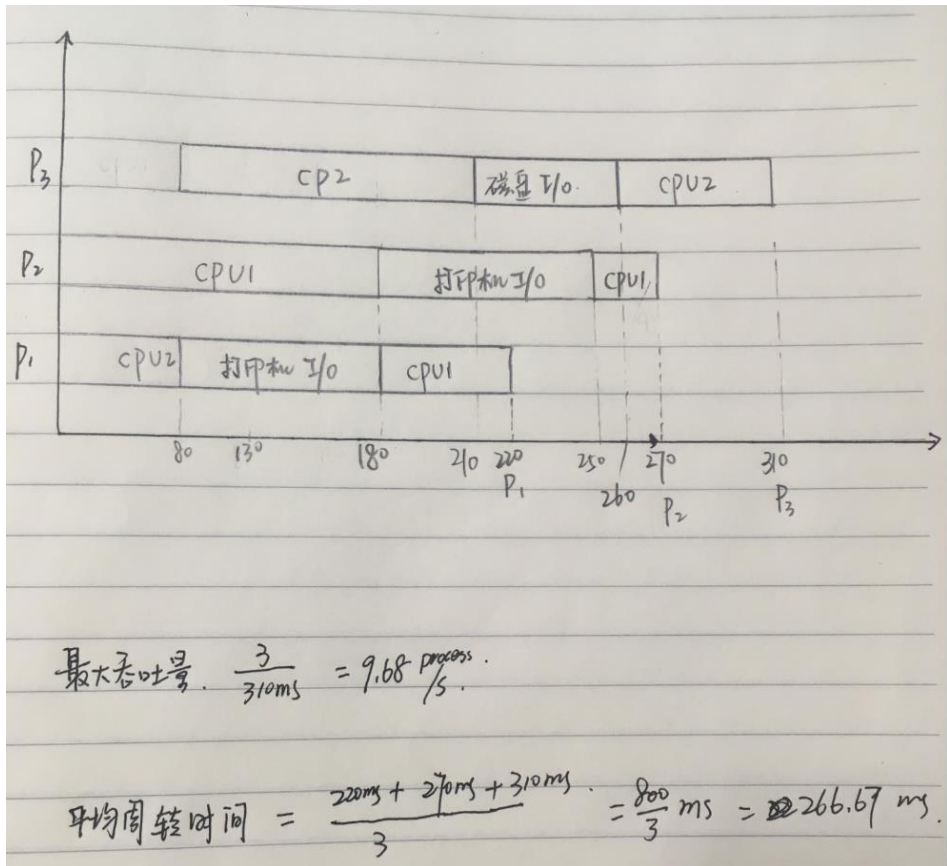 P3 CP2 磁盘 I/O. CPU2
P2 CPU1 打印机 I/O CPU1
P1 CPU2 打印机 I/O CPU1
80 130 180 210 220 250 260 270 310
P1 P2 P3
最大吞吐量. 3/310ms = 9.68 process/s.
平均周转时间 = (220ms + 270ms + 310ms)/3 = 800/3 ms = 266.67 ms.